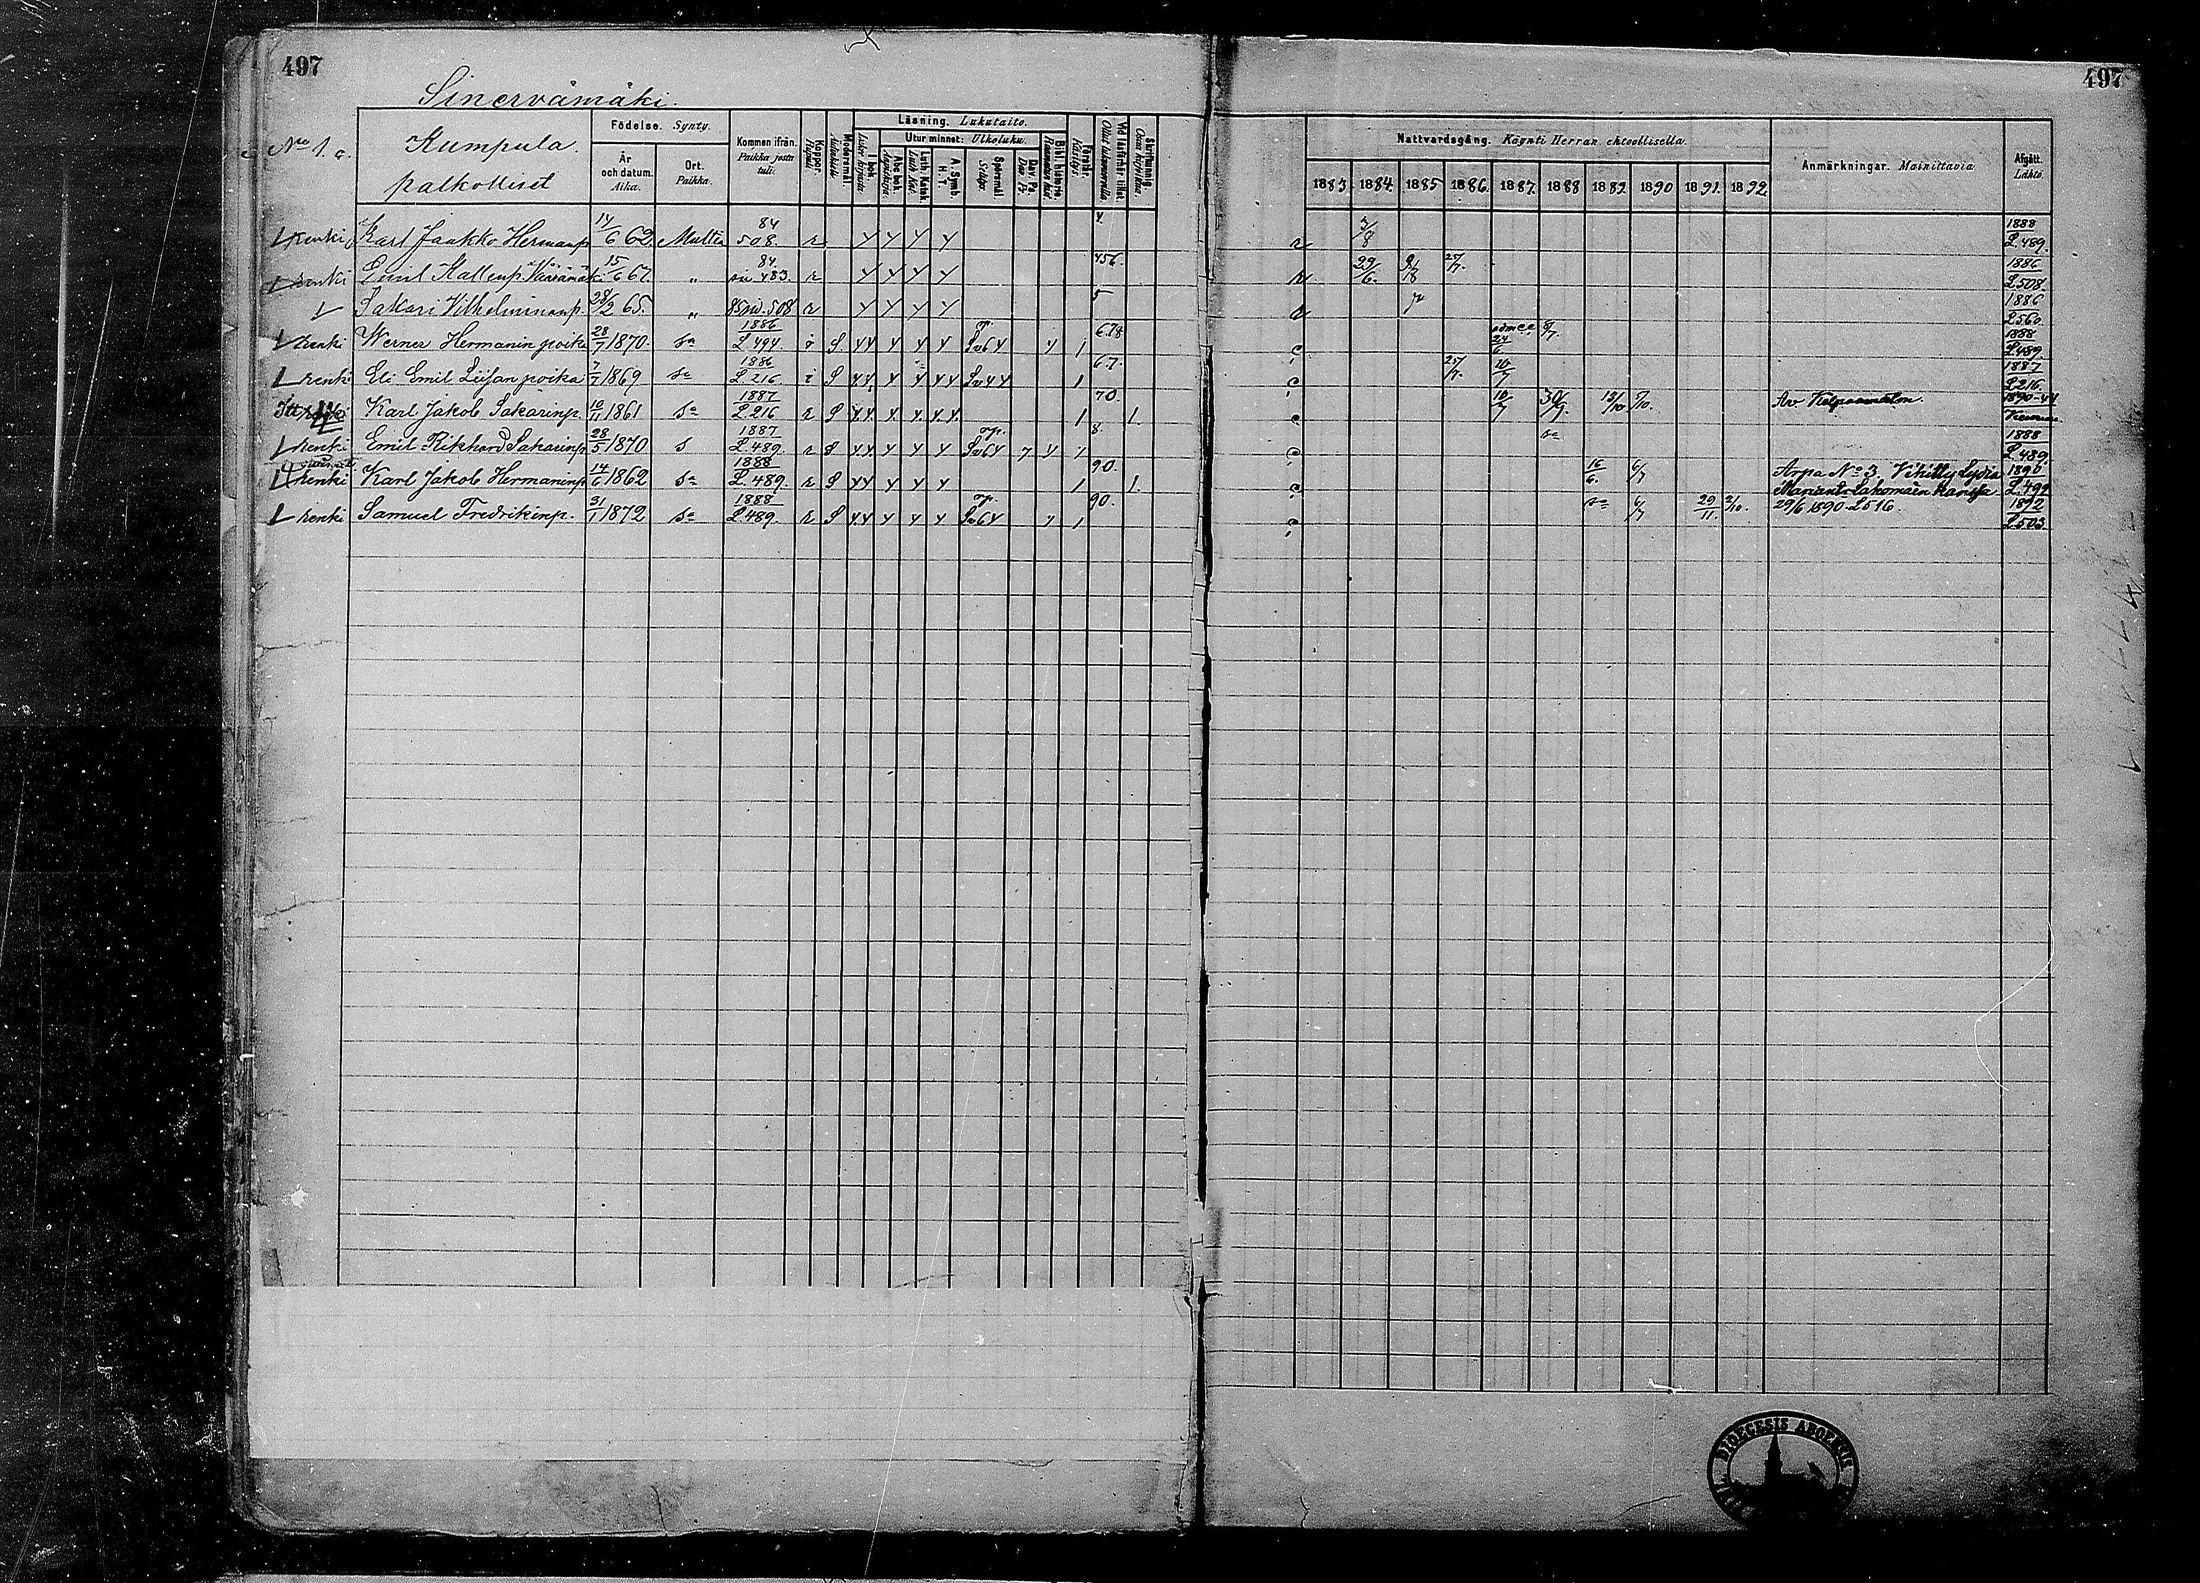 497
497
Sinervämäki.
No 1. a.
Kumpula.
palkolliset
Födelse. Synty.
År och datum. Aika.
Ort. Paikka.
Kommen ifrån. Paikka josta tuli.
Koppor. Rupuli.
Modersmål. Äidinkieli.
Läsning. Lukutaito.
I bok.
Utur minnet: Ulkoluku.
Abc bok. Aapiskirja.
Luth. Katek. Luth. Kat.
A. Symb. H. T.
Spörsmål.
Dav. Ps. Dav. Ps.
Bibl. historia.
Förstår. Käsitys.
Vid läsförhör tillst. Ollut lukuvuorolla.
Skrifkunnig. Osaa kirjoittaa.
Nattvardsgång. Käynti Herran ehtoollisella.
1883. 1884. 1885 1886. 1887. 1888 1889. 1890 1891. 1892.
Anmärkningar. Mainittavia
Afgått. Lähtö.
renki Karl Jaakko Hermanp. 14/6 62. Multia 84 508. r y y y y 4. r 3/8 1888 L. 489.
renki Emil Kallenp. 15/6 67. " 84 siv 483. r y y y y 456. r 29/6. 27/7. 1886 L 508.
Sakari Vilhelminanp. 28/2 65. " 508 r y y y y 5 r 1886 L 560.
renki Werner Hermanin poika 28/7 1870. sa 1886 L. 494. S yy y y y y 1 6.78 24/6 1888 L 489
renki Eli Emil Liisan poika 7/7 1869 sa 1886 L. 216 S yy y y yy 1 67. 25/7. 10/7 1887 L 216.
Karl Jakob Sakarinp. 10/11 1861 sa 1887 L 216 r S y y. y y. y y. 1 70. 1. 10/7 30/9. 13/10 5/10. 1890-44
renki Emil Rikhard Sakarinp 28/5 1870 s 1887 L. 489. r S yy y y y y 8. sa 1888 L. 489.
renki Karl Jakob Hermaninp 14/6 1862 sa 1888 L. 489. r S yy y y y 1 90. 1. 16/6. 6/7 Arpa No 3. Vihitty Lydia 1890 L. 499
renki Samuel Fredrikinp. 31/1 1872 sa 1888 L 489. r S yy y y y y 1 90. sa 6/7 29/11. 2/10. 29/6 1890. L 516. 1892 L 503
DIOECESIS ABOENSIS